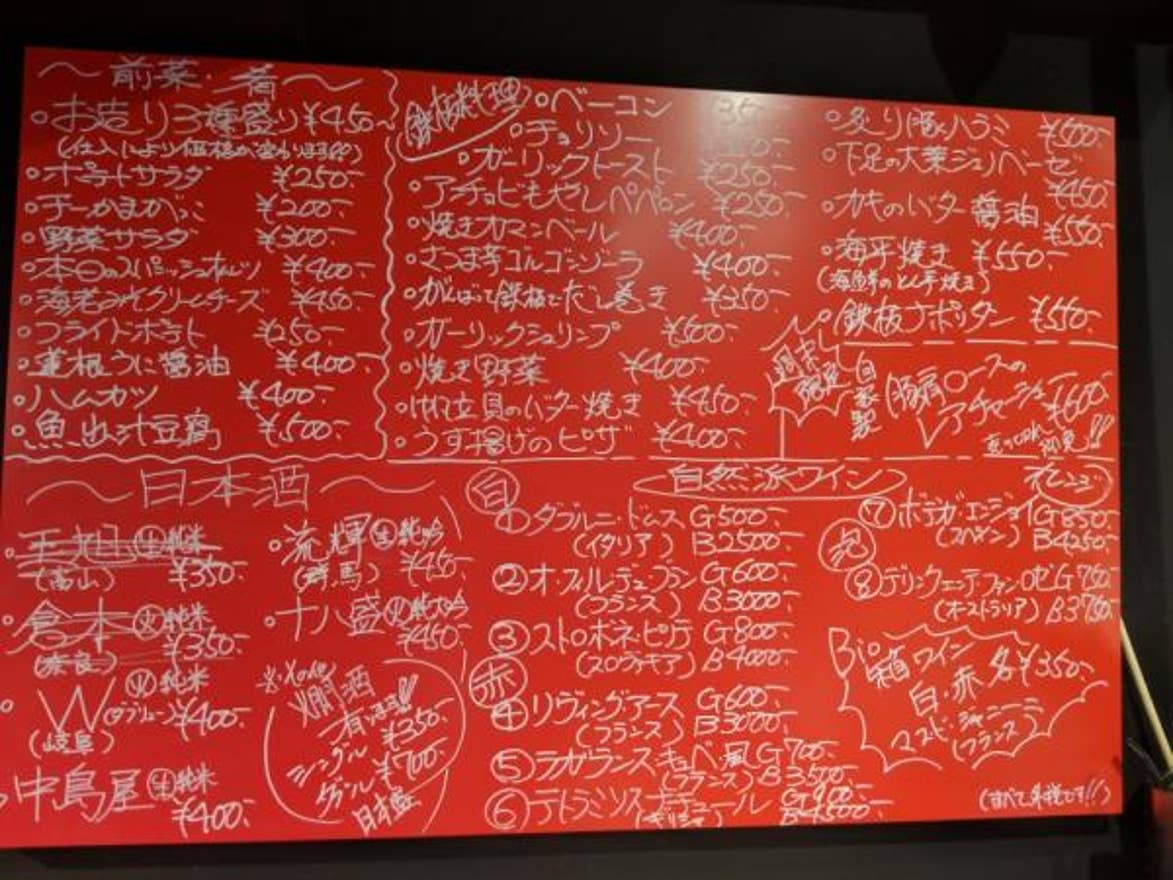 ～前菜・肴～
・お造り3種盛り ¥450-
(仕入により価格が変わります!!)
・ポテトサラダ ¥250-
¥200-
・野菜サラダ ¥300-
・本日のスパニッシュオムレツ ¥400-
・海老みそクリームチーズ ¥450-
・フライドポテト ¥250-
・蓮根うに醤油 ¥400-
・ハムカツ ¥400-
・魚出汁豆腐 ¥500-
鉄板料理
・ベーコン
・チョリソー
・ガーリックトースト ¥250-
・アンチョビもやしペペロン ¥250-
・焼きカマンベール ¥400-
・さつま芋ゴルゴンゾーラ ¥400-
・がんばって鉄板でだし巻き ¥350-
・ガーリックシュリンプ ¥500-
・焼き野菜 ¥400-
・帆立貝のバター焼き ¥450-
・うす揚げのピザ ¥400-
・炙り豚ハラミ ¥500-
・下足の大葉ジェノベーゼ ¥450-
・カキのバター醤油 ¥550-
・海平焼き ¥550-
(海鮮のとん平焼き)
・鉄板ナポリタン ¥550-
週末限定
自家製
豚肩ロースの
¥600-
～日本酒～
(富山) ¥350-
・倉本 火 純米
(奈良) ¥350-
・W 火 純米
¥400-
(岐阜)
・中島屋 生 純米
¥400-
・流輝 生 純吟
(群馬) ¥450-
・十八盛 火 純大吟
¥450-
燗酒
有ります!!
シングル ¥350-
ダブル ¥700-
日本盛
自然派ワイン
白
①ダブルニ・ドムス G500-
(イタリア) B2500-
②オ・フィル・デュ・ブラン G600-
(フランス) B3000-
③ストロボネ・ピリテ G800-
(スロヴァキア) B4000-
赤
④リヴィングアース G600-
(フランス) B3000-
⑤ラガランスキュベ・風 G700-
(フランス) B3500-
⑥テトラミソスナチュール G900-
(ギリシャ) B4500-
オレンジ
⑦ボデガ・エンジョイ G850-
(スペイン) B4250-
⑧デリンクエンテ・ファンロゼ G750-
(オーストラリア) B3750-
Bio箱ワイン
白・赤 各¥350-
マスビジャニーニ
(フランス)
(すべて外税です!!)